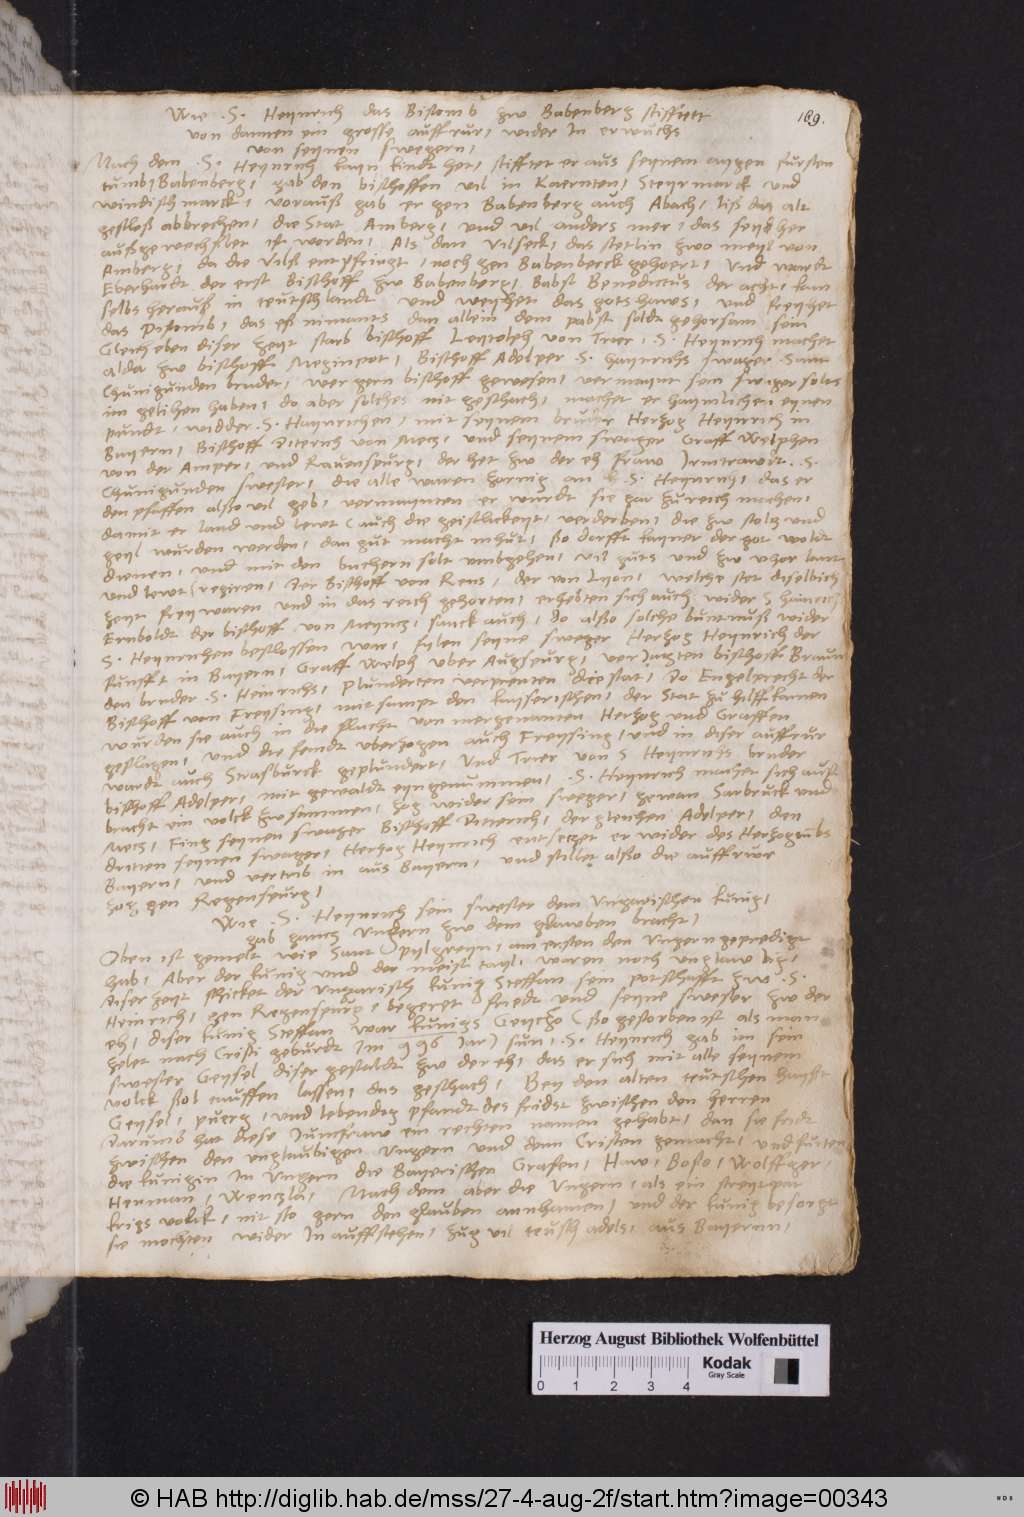 169.
Wie .S. Heynrich das Bistomb zw Babenberg stifftett
von dannen ein grosse auffrur, wider In erwuchs
von seynen swegern,
Nach dem .S. Heynrich kayn kindt het, stifftet er aus seynem aygen fursten
tumb, Babenberg, gab den bischoffen vil in Kaernten, Steyrmarck und
windischmarck, vorauß gab er gen Babenberg auch Abach, liß das alt
gesloß abbrechen, die Stat Amberg, und vil anders mer, das seydher
außgewechslet ist worden, Als dan vilseck, das stetlin zwo meyl von
Amberg, da die Vilß entspringt, noch gen Babenberck gehoert, Und wardt
Eberhardt der erst Bischoff zw Babenberg, Babst Benedictus der acht, kam
selbs herauß in teutschlandt und weyhet das gotshaws, und freyhet
das Pistomb, das es nimants dan allein dem pabst soldt gehorsam sein
Gleich eben diser zeyt starb bischoff Leutolph von Trier, .S. Heynrich machet
alda zw bischoff Megingot, Bischoff Adelper .S. haynrichs swager Sant
Chunigunden bruder, wer gern bischoff gewesen, vermaynt sein sweger solts
im gelihen haben, do aber solches nit geschach, machet er haymlichen eynen
pundt, widder .S. Haynrichen, mit seynem bruder Herzog Heynrich in
Bayern, Bischoff Diterich von Mecz, und seynem swager Graff Welphen
von der Amper, und Rauenspurg, der het zw der eh fraw Irmtrawdt .S.
Chunigunden swester, die alle waren zornig an .S. Heynrich, das er
den pfaffen also vil geb, vermaynten er wurdt sie gar zu reich machen,
damit er land und lewt (auch die geistlickeyt, verderben, die zw stolz und
geyl wurden werden, dan gut macht mhut, ßo dorfft kayner der got woldt
dienen, und mit den buchern solt umbgehen, vil guts und zw vhor lant
und lewt (regiren, Der Bischoff von Rens, der von Lyon, welche stet diselbich
zeyt frey waren und in das reich gehorten, erhebten sich auch wider S hainrich
Ernboldt der bischoff von Meyncz, sanck auch, do also solche buntnuß wider
S. Heynrichen beslossen war, fylen seyne sweger Herzog Heynrich der
funfft in Bayern, Graff Welph uber Augspurg, verJagten bischoff Braun
den bruder .S. Heinrichs, Plunderten verprenten die stat, Do Engelprecht der
Bischoff von Freysing, mit sampt den kayserischen, der Stat zu hilff kamen
wurden sie auch in die flucht von mergenanten Herzog und Graffen
geslagen, und die feindt uberzogen auch Freysing, und in diser auffrur
wardt auch Strasburck geplundert, Und Trier von S Heynrichs bruder
bischoff Adelper, mit gewaldt eyngenummen, .S. Heynrich machet sich auff
bracht ein volck zwsammen, zog wider sein sweger, gewan Sarbruck und
Mecz, fing seynen swager Bischoff Ditterich, dergleichen Adelper, den
dritten seynen swager, Herzog Heynrich entseczet er wider des Herzogtubs
Bayern, und vertrib in aus Bayern, und stillet also die auffrwr
zog gen Regenspurg,
Wie .S. Heynrich sein swester dem Ungarischen kunig,
gab gancz Ungern zw dem glawben bracht,
Oben ist gemelt wie Sant Pylgreyn, am ersten den Ungern gepredigt
hab, Aber der kunig und der meist tayl, waren noch unglawbig,
diser zeyt schicket der Ungarisch kunig Steffan sein potschafft zw .S.
Heinrich, gen Regenspurg, begeret friedt und seyne swester zw der
eh, diser kunig Steffan war kunigs Geyczo (ßo gestorben ist als man
zelet nach Cristi geburdt Im 996 Jar) sun, .S. Heynrich gab im sein
swester Geysel diser gestaldt zw der eh, das er sich mit alle seynem
volck ßol tauffen lassen, das geschach, Bey den alten teutschen hayst
Geysel, puerg, und lebendig pfandt des fridst zwischen den herren
darumb hat diese Junckfraw ein rechten namen gehabt, dan sie fridt
zwischen den unglaubigen Ungern und denn Cristen gemacht, und furten
die kunigin In Ungern die Bayerischen Grafen, Haw, Boso, Wolffger,
Herman, Wenczla, Nach dem aber die Ungern, als ein streytpar
krigs volck, nit sso gern den glauben annhamen, und der kunig besorgt
sie mochten wider In auffstehen, zug vil teusch adels, aus Bayernn,
Herzog August Bibliothek Wolfenbüttel
Kodak
Gray Scale
0 1 2 3 4
© HAB http://diglib.hab.de/mss/27-4-aug-2f/start.htm?image=00343